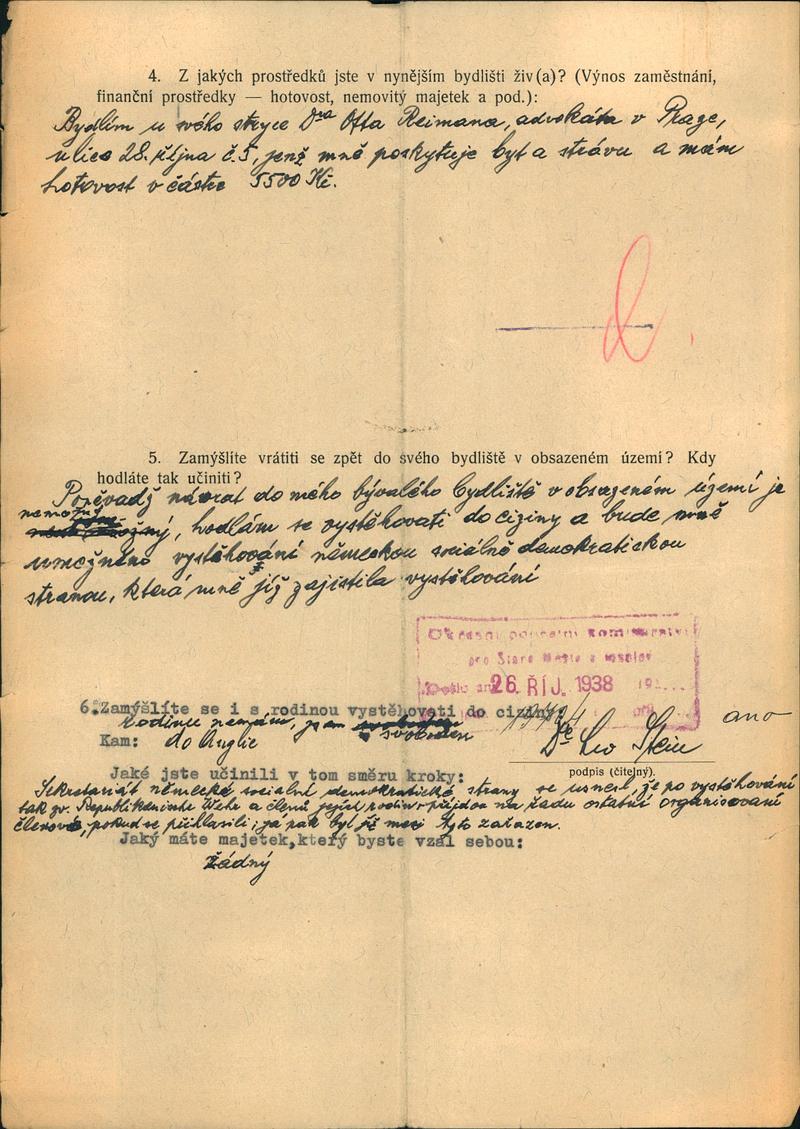 4. Z jakých prostředků jste v nynějším bydlišti živ(a)? (Výnos zaměstnání,
finanční prostředky — hotovost, nemovitý majetek a pod.):
Bydlím u svého strýce Dra Otta Reimana, advokáta v Praze,
ulice 28. října č. 5, jenž mně poskytuje byt a stravu a mám
hotovost v částce 5500 Kč.
5. Zamýšlíte vrátiti se zpět do svého bydliště v obsazeném území? Kdy
hodláte tak učiniti?
Poněvadž návrat do mého bývalého bydliště v obsazeném území je
nemožný, hodlám se vystěhovati do ciziny a bude mně
umožněno vystěhování německou sociálně demokratickou
stranou, která mně již zajistila vystěhování
Okresní policejní komisařství
pro Staré Město a Josefov
Došlo dne 26. ŘÍJ. 1938
6. Zamýšlíte se i s rodinou vystěhovati do ciziny: ano
rodinu nemám, jsem svoboden
Kam: do Anglie
Dr Leo Stein
podpis (čitelný).
Jaké jste učinili v tom směru kroky:
Sekretariát německé sociálně demokratické strany se usnesl, že po vystěhování
tak zv. Republikanische Wehr a členů jejich rodin přijdou na řadu ostatní organisovaní
členové, pokud se přihlásili; já pak byl již mezi tyto zařazen.
Jaký máte majetek, který byste vzal sebou:
žádný